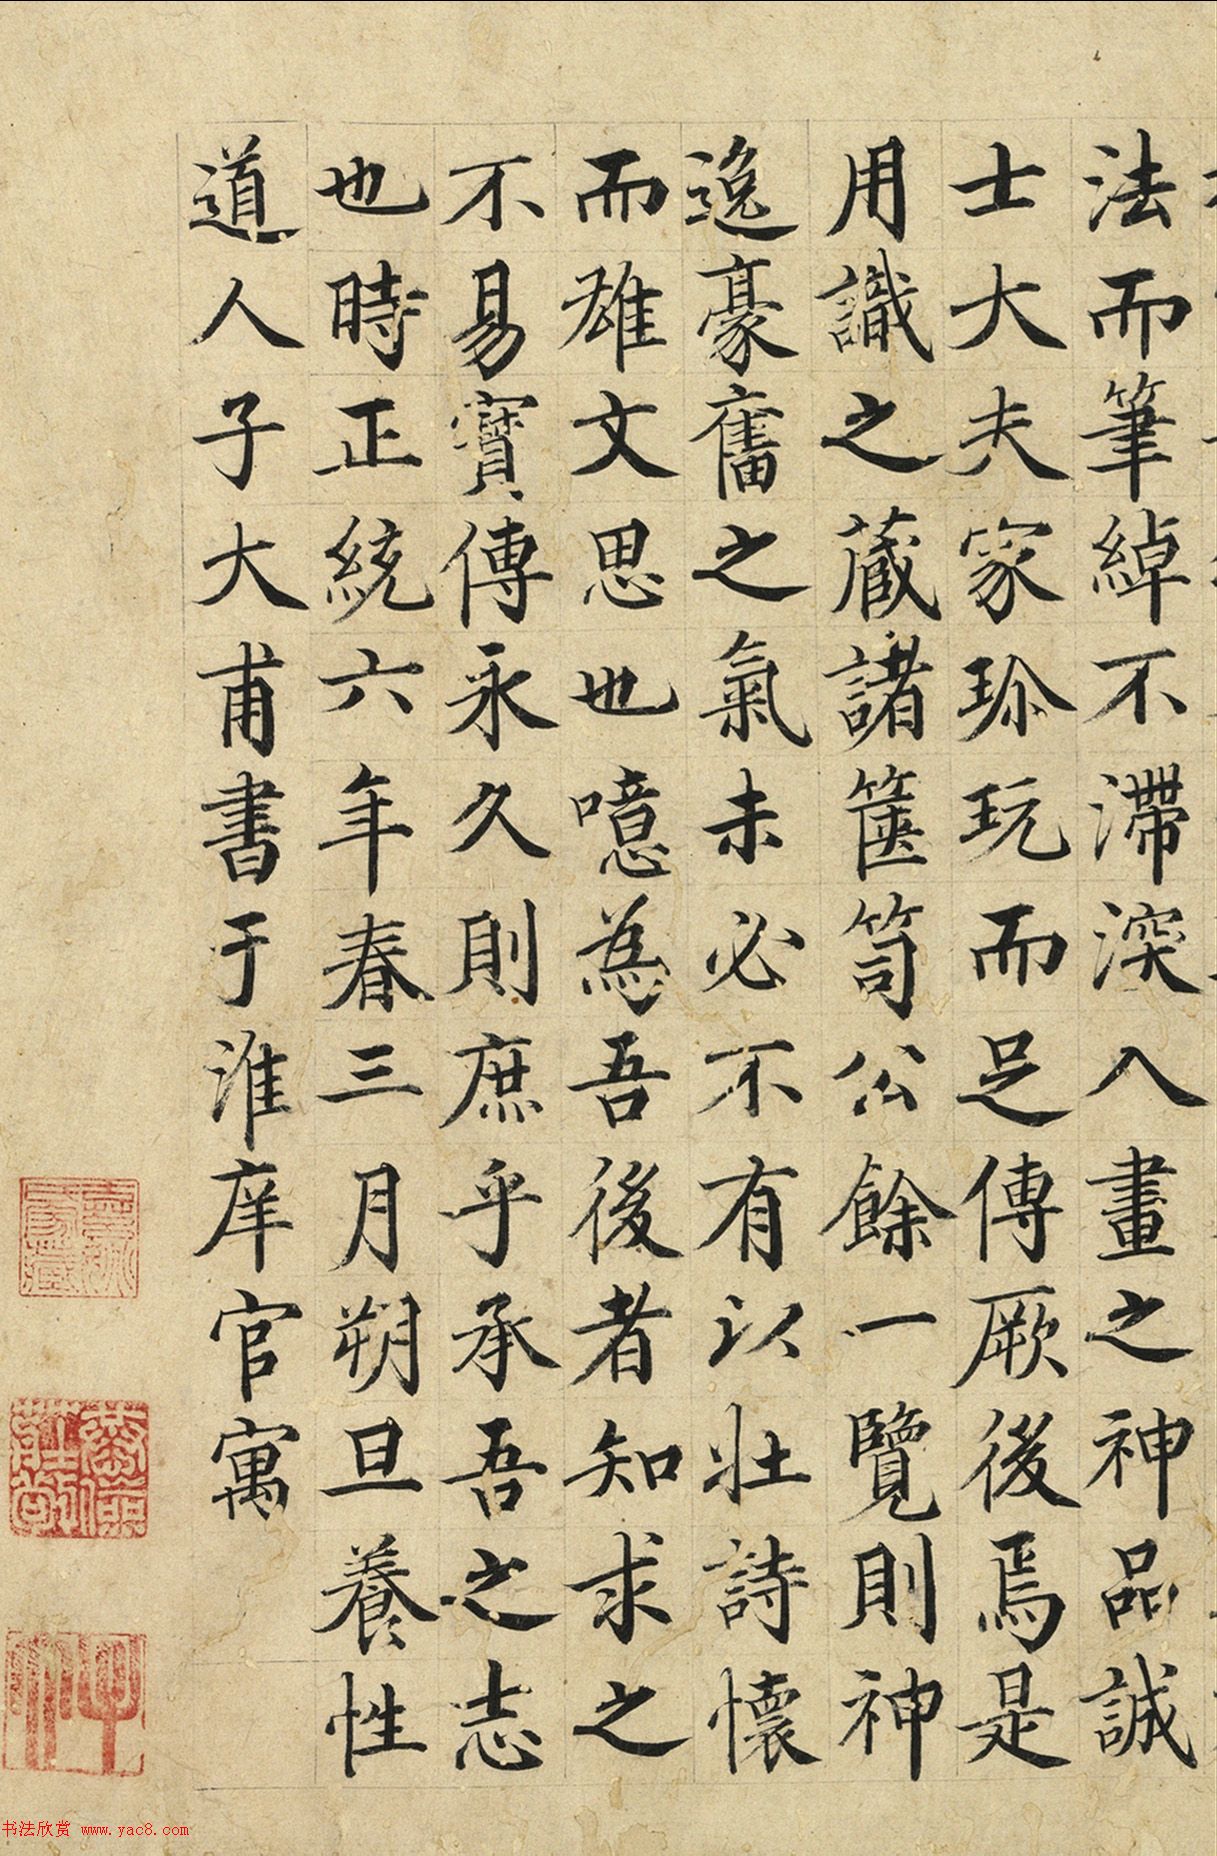 法而筆綽不滯深入畫之神品誠
士大夫家珎玩而足傳厥後焉是
用識之藏諸篋笥公餘一覽則神
逸豪奮之氣未必不有以壯詩懷
而雄文思也噫為吾後者知求之
不易寶傳永久則庶乎承吾之志
也時正統六年春三月朔旦養性
道人子大甫書于淮庠官寓
书法欣赏 www.yac8.com